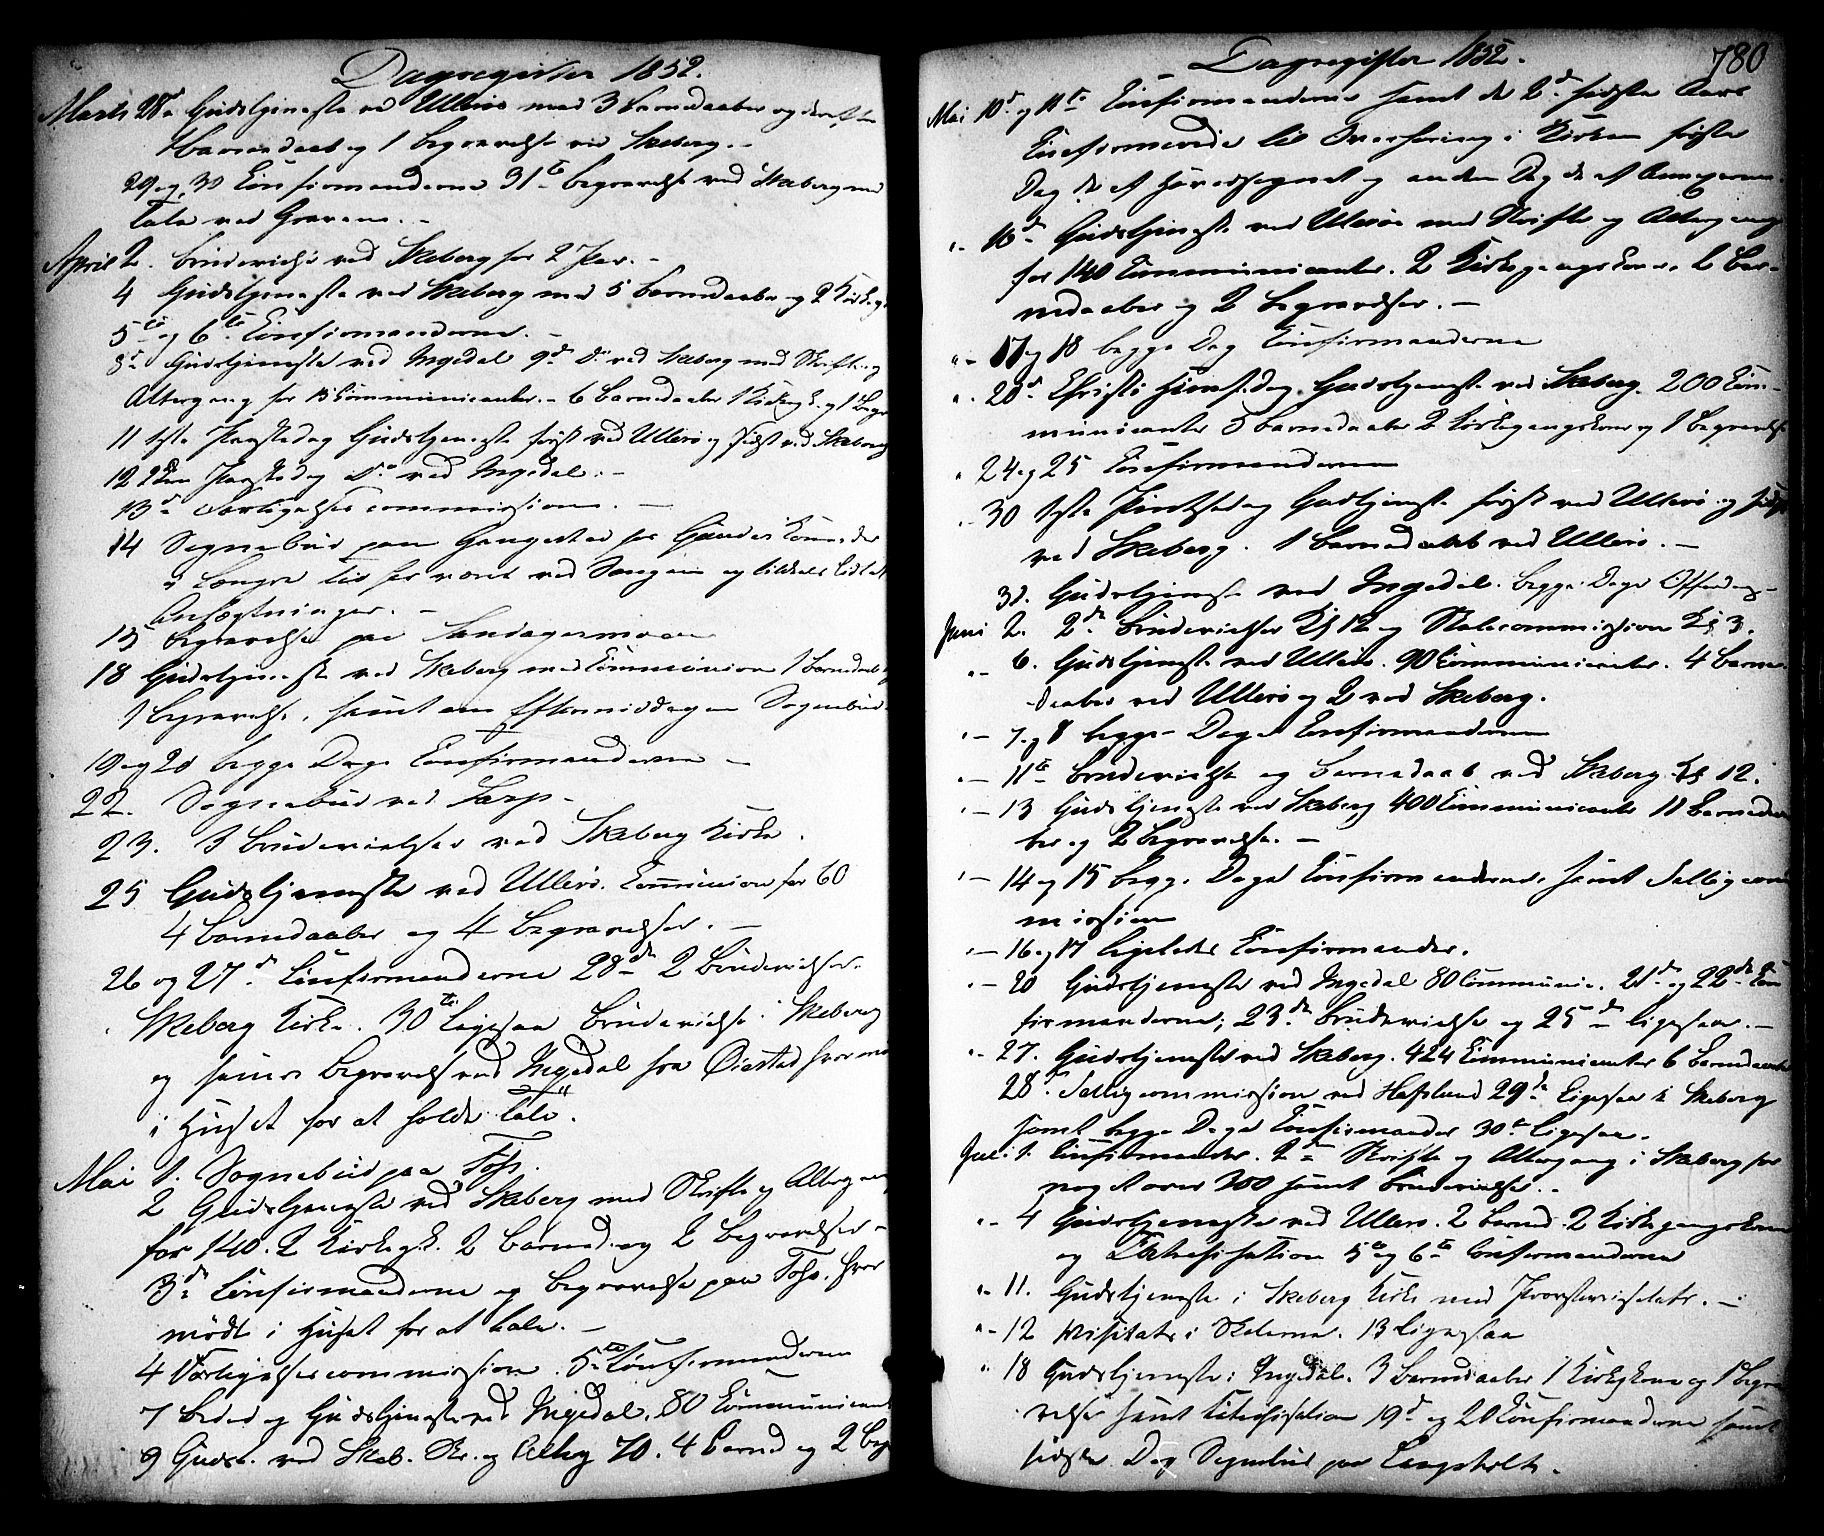 Dagregister 1852.
Marts 28de Gudstjeneste ved Ullerø med 3 Barnedaaber og derefter
1 Barnedaab og 1 Begravelse ved Skeberg. -
29 og 30 Confirmanderne 31te Begravelse ved Skeberg med
Tale ved Graven. -
April 2. Brudevielse ved Skeberg for 2 Par. -
4 Gudstjeneste ved Skeberg med 5 Barnedaaber og 2 Kirkeg.
5te og 6te Confirmanderne. -
8de Gudstjeneste ved Ingedal 9de Do ved Skeberg med Skrifte og
Altergang for Communicanter. - 6 Barnedaaber 1 Kirkeg.k. og 1 Begr
11 1ste Paaskedag Gudstjeneste først ved Ullerø og sidst ved Skeberg
12 2den Paaskedag Do ved Ingedal. -
13de Forligelsescommission. -
14 Sognebud paa
og ved Sengen og
Anfægtninger. -
15 Begravelse paa
18 Gudstjeneste ved Skeberg med Communion 1 Barnedaab og
1 Begravelse, samt om Eftermiddagen Sognebud
19 og 20 begge Dage Confirmanderne -
22. Sognebud ved Sarp. -
23. 3 Brudevielser ved Skeberg Kirke.
25 Gudstjeneste ved Ullerø. Communion for 60
4 Barnedaaber og 4 Begravelser. -
26 og 27de Confirmanderne 28de 2 Brudevielser.
Skeberg Kirke. 30te Ligesaa Brudevielse i Skeberg
og samme Begravelse ved Ingedal fra Øiestad hvor
i Huset for at holde Tale.
Mai 1. Sognebud paa Foss.
2 Gudstjeneste ved Skeberg med Skrifte og Altergang
for 140. 2 Kirkeg.k. 2 Barned. og 2 Begravelser -
3de Confirmanderne og Begravelse paa Foss. hvor
mødt i Huset for at tale. -
4 Forligelsescommission. 5te Confirmanderne
7 Bededag Gudstjeneste ved Ingedal. 80 Communicant
9 Gudst. ved Skeb. Skr. og Alterg 70. 4 Barned og 2 Beg
Dagregister 1852.
780
Mai 10de og 11te Confirmanderne samt de 2de sidste Aars
Confirmerede til Overhøring i Kirken første
Dag de af Hovedsognet og anden Dag de af Annexerne.
" - 16de Gudstjeneste ved Ullerø med Skrifte og Altergang
for 140 Communicanter. 2 Kirkegangskoner. 2 Bar-
nedaaber og 2 Begravelser. -
" - 17 og 18 begge Dag Confirmanderne
" - 20de Christi Himelf.dag. Gudstjeneste ved Skeberg. 200 Com-
municanter 5 Barnedaaber 2 Kirkegangskoner og 1 Begravelse
" 24 og 25 Confirmanderne
" - 30 1ste Pintsedag Gudstjeneste først ved Ullerø og sidst
ved Skeberg. 1 Barnedaab ved Ullerø. -
31. Gudstjeneste ved Ingedal. begge Dage Offerdag -
Juni 2. 2de Brudevielser Kl 12 og Skolecommission Kl 3.
" - 6. Gudstjeneste ved Ullerø. 90 Communicanter. 4 Barne-
daaber ved Ullerø og 2 ved Skeberg.
" - 7. og 8 begge Dage Confirmanderne
" - 11te Brudevielse og Barnedaab ved Skeberg. Kl 12.
" - 13 Gudstjeneste ved Skeberg 400 Communicanter 11 Barnedaa
ber og 2 Begravelse. -
" - 14 og 15 begge Dage Confirmanderne, samt Fattigcom
mission
" - 16 og 17 ligeledes Confirmander.
" - 20 Gudstjeneste ved Ingedal 80 Communic. 21de og 22de Con
firmanderne; 23de Brudevielse og 25de ligesaa. -
" - 27. Gudstjeneste ved Skeberg. 424 Communicanter 6 Barnedaaber
28de Fattigcommission ved Hafslund 29de Ligesaa i Skeberg
samt begge Dage Confirmander 30te ligesaa.
Juli 1. Confirmander. 2den Skrifte og Altergang i Skeberg for
noget over 300 samt Brudevielse. -
" - 4 Gudstjeneste ved Ullerø. 2 Barned. 2 Kirkegangskoner
og Catechisation 5te og 6te Confirmanderne
" - 11. Gudstjeneste i Skeberg Kirke med Provstevisitats. -
" - 12 Visitats i Skolerne. 13 Ligesaa
" 18 Gudstjeneste i Ingedal. 3 Barnedaaber 1 Kirkegkone og 1 Begra
velse samt Catechisation 19de og 20 Confirmanderne samt
sidste Dag Sognebud paa Langholt.